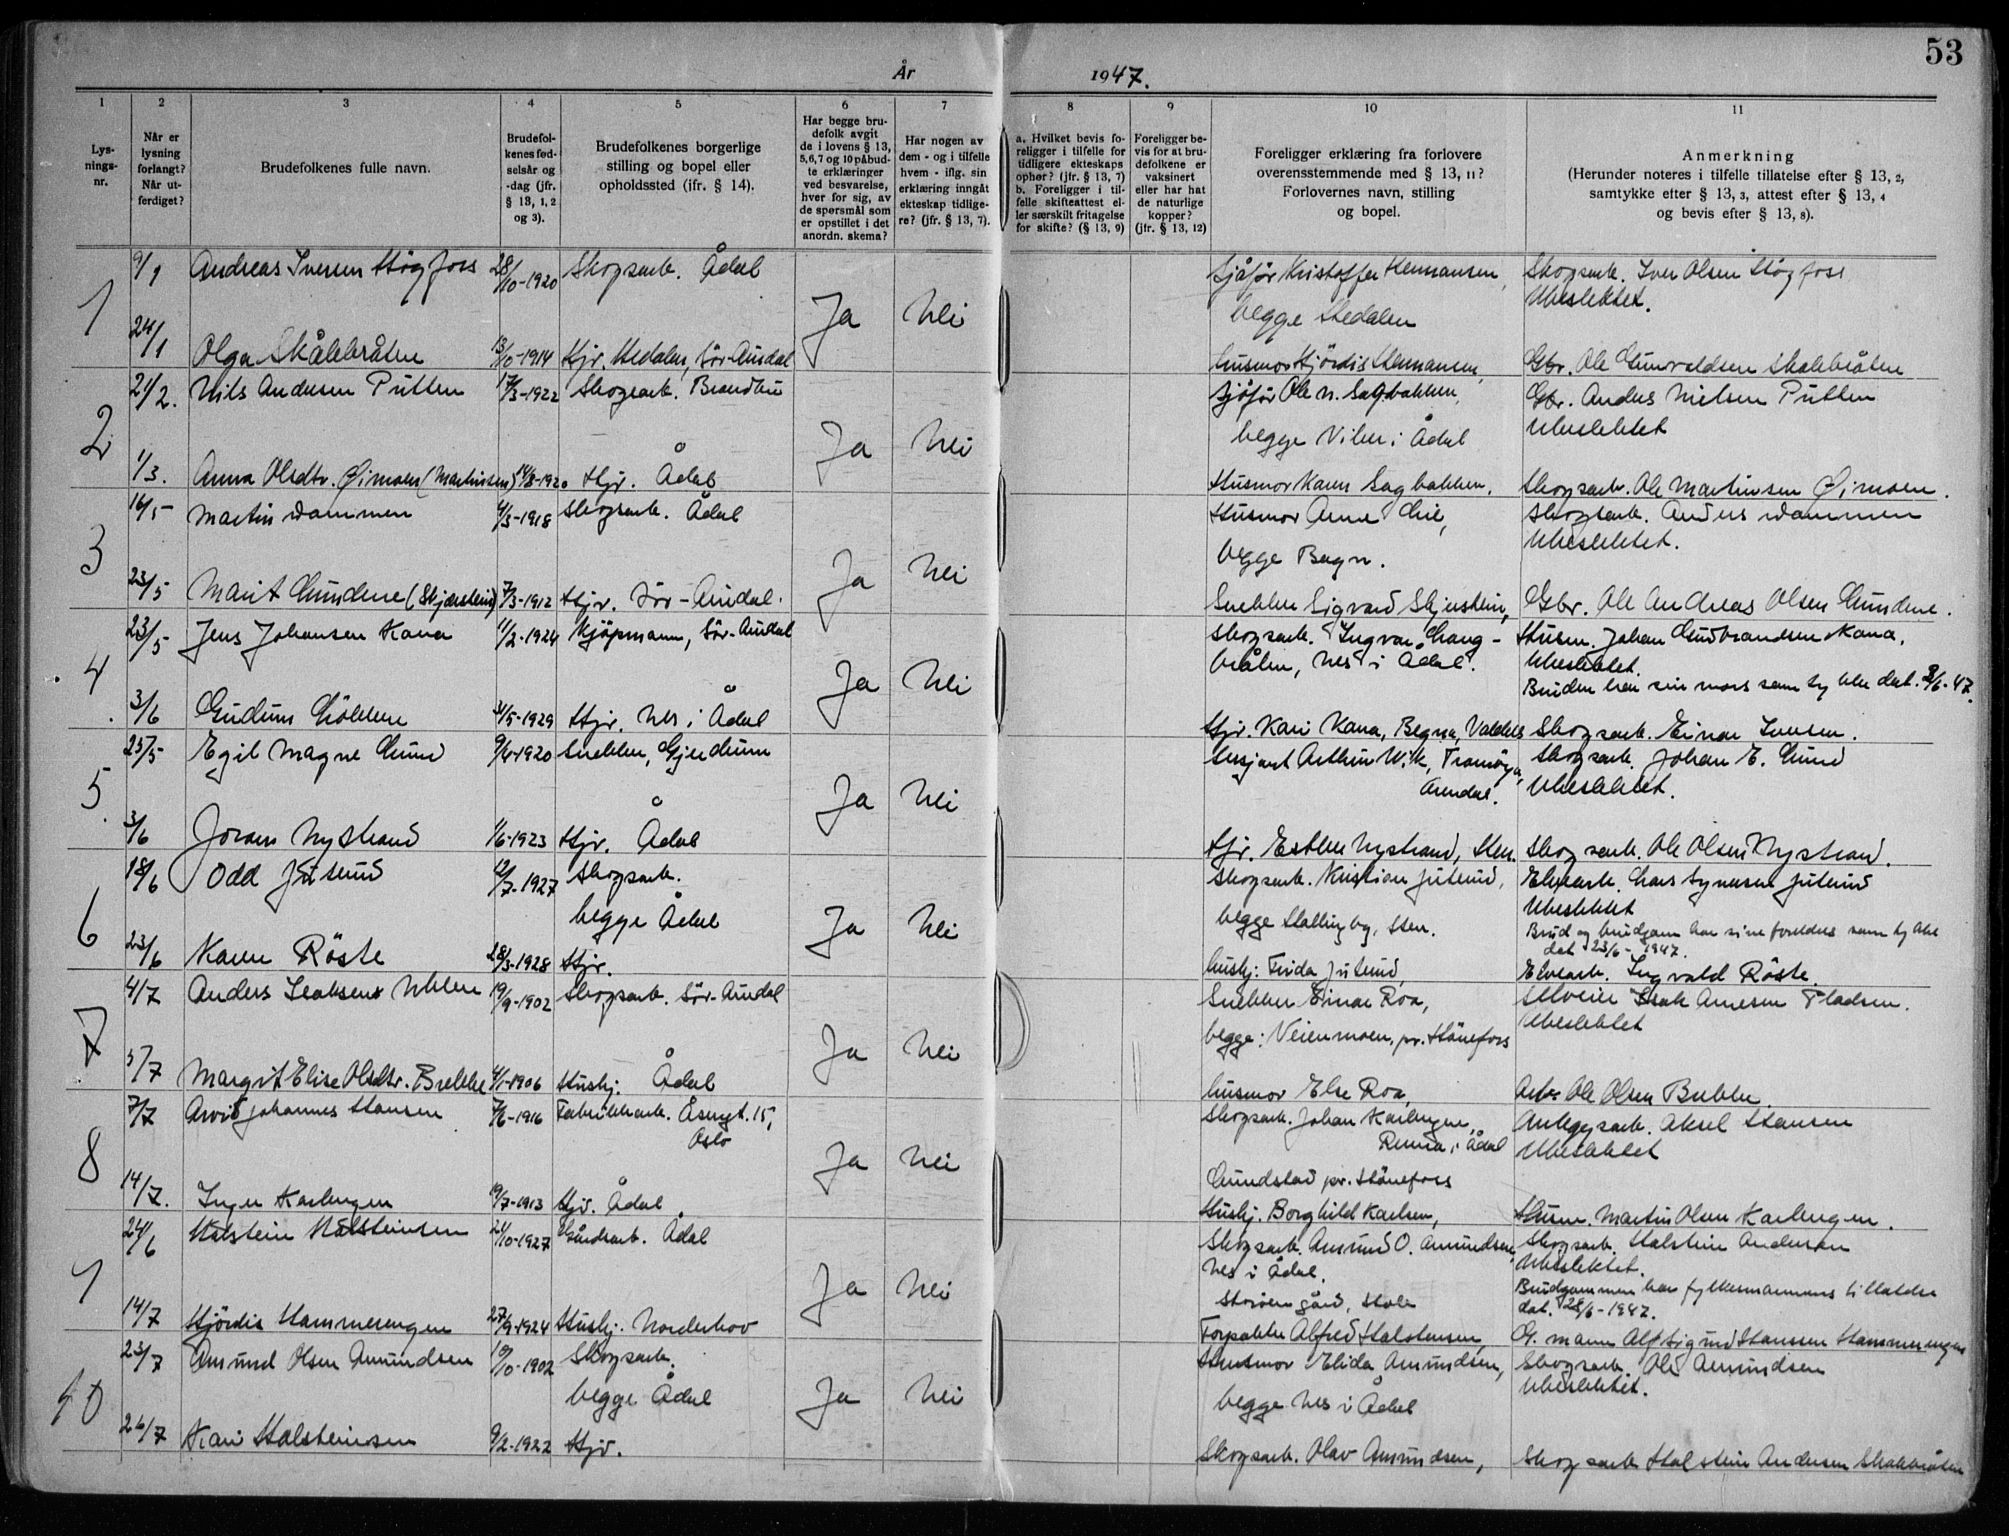 53
År 1947.
1 2 3 4 5 6 7 8 9 10 11
Lysningsnr.
Når er lysning forlangt? Når utferdiget?
Brudefolkenes fulle navn.
Brudefolkenes fødselsår og -dag (jfr. § 13, 1, 2 og 3).
Brudefolkenes borgerlige stilling og bopel eller opholdssted (ifr. § 14).
Har begge brudefolk avgitt de i lovens § 13, 5,6,7 og 10 påbudte erklæringer ved besvarelse, hver for sig, av de spørsmål som er opstillet i det anordn. skema?
Har nogen av dem - og i tilfelle hvem - iflg. sin erklæring inngått ekteskap tidligere? (jfr. § 13, 7).
a. Hvilket bevis foreligger i tilfelle for tidligere ekteskaps ophør? (jfr. § 13, 7)
b. Foreligger i tilfelle skifteattest eller særskilt fritagelse for skifte? (§ 13, 9)
Foreligger bevis for at brudefolkene er vaksinert eller har hat de naturlige kopper? (jfr. § 13, 12)
Foreligger erklæring fra forlovere overensstemmende med § 13, 11? Forlovernes navn, stilling og bopel.
Anmerkning
(Herunder noteres i tilfelle tillatelse efter § 13, 2, samtykke efter § 13, 3, attest efter § 13, 4 og bevis efter § 13, 8).
1
9/1 Andreas Iversen Høgfoss 28/10-1920 Skogsarb. Ådal
Sjåfør Kristoffer Hermansen, Skogsarb. Iver Olsen Høgfoss
Ja Nei begge Hedalen Ubeslektet.
24/1 Olga Skålebråten 13/10-1914 Hjv. Hedalen, Sør-Aurdal
husmor Hjördis Hermansen, Gbr. Ole Gunvaldsen Skalebråten
2
21/2. Nils Andersen Putten 17/3-1922 Skogsarb. Brandbu
Sjåfør Ole N. Sagbakken, Gbr. Anders Nielsen Putten
Ja Nei begge Viker i Ådal Ubeslektet
1/3. Anna Olsdtr. Øimoen (Martinsen) 14/8-1920 Hjv. Ådal
Husmor Karen Sagbakken, Skogsarb. Ole Martinsen Øimoen.
3
16/5 Martin Dammen 4/3-1918 Skogsarb. Ådal
Husmor Anne Lie, Skogsarb. Anders Dammen
Ja Nei begge Bagn. Ubeslektet.
23/5 Marit Lundene (Skjerstein) 7/3-1912 Hjv. Sør-Aurdal.
Snekker Sigvard Skjerstein, Gbr. Ole Andreas Olsen Lundene.
4
23/5 Jens Johansen Kana 11/2-1924 Kjöpmann, Sör-Aurdal
Skogsarb. Ingvar Langbråten, Nes i Ådal. Husm. Johan Gudbrandsen Kana.
Ja Nei Ubeslektet.
Bruden har sin mors samtykke dat. 2/6-47.
3/6 Gudrun Lökken 31/5-1929 Hjv. Nes i Ådal
Hjv. Kari Kana, Begna, Valdres Skogsarb. Einar Iversen.
5
23/5 Egil Magne Lund 9/4-1920 Snekker, Gjerdrum
Sersjant Arthur Wik, Tromöya, Arendal. Skogsarb. Johan E. Lund
Ja Nei Ubeslektet.
3/6 Jorunn Nystrand 1/6-1923 Hjv. Ådal
Hjv. Esther Nystrand, Hen. Skogsarb. Ole Olsen Nystrand.
6
18/6 Odd Juterud 12/7-1927 Skogsarb.
Skogsarb. Kristian Juterud, Elvearb. Lars Syversen Juterud
begge Ådal Ja Nei begge Hallingby, Hen. Ubeslektet
Brud og brudgom har sine foreldres samtykke dat. 23/6-1947.
23/6 Karen Röste 28/3-1928 Hjv.
hushj. Frida Juterud, Elvearb. Ingvald Röste.
7
4/7 Anders Isaksen Uhlen 19/9-1902 Skogsarb. Sör-Aurdal
Snekker Einar Roa, Selveier Isak Arnesen Pladsen.
Ja Nei begge: Veienmoen, pr. Hönefoss Ubeslektet
5/7 Margit Elise Olsdtr. Brekke 4/1-1906 Hushj. Ådal
husmor Else Roa, Arb. Ole Olsen Brekke.
8
7/7 Arvid Johannes Hansen 7/6-1916 Fabrikkarb. Åsengt. 15, Oslo
Skogsarb. Johan Karlsengen, Rensa i Ådal Anleggsarb. Aksel Hansen
Ja Nei Ubeslektet
Lundstad pr. Hönefoss
14/7. Inger Karlsengen 19/7-1913 Hjv. Ådal
Hushj. Borghild Karlsen, Husm. Martin Olsen Karlsengen.
9
24/6 Halstein Halsteinsen 24/10-1927 Gårdsarb. Ådal
Skogsarb. Amund O. Amundsen, Nes i Ådal. Skogsarb. Halstein Andersen
Ja Nei Ubeslektet.
Brudgommen har fylkesmannens tillatelse dat. 28/6-1947.
gård, Hole
14/7 Hjördis Hammerengen 27/9-1924 Hushj. Norderhov
Forpakter Alfred Halstensen, G. mann Alf Sigurd Hanssen Hammerengen
10
23/7 Amund Olsen Amundsen 19/10-1902 Skogsarb.
Husmor Elida Amundsen, Skogsarb. Ole Amundsen
begge Ådal Ja Nei begge Nes i Ådal Ubeslektet.
26/7 Kari Halsteinsen 9/2-1922 Hjv.
Skogsarb. Olav Amundsen, Skogsarb. Halstein Andersen Skalebråten